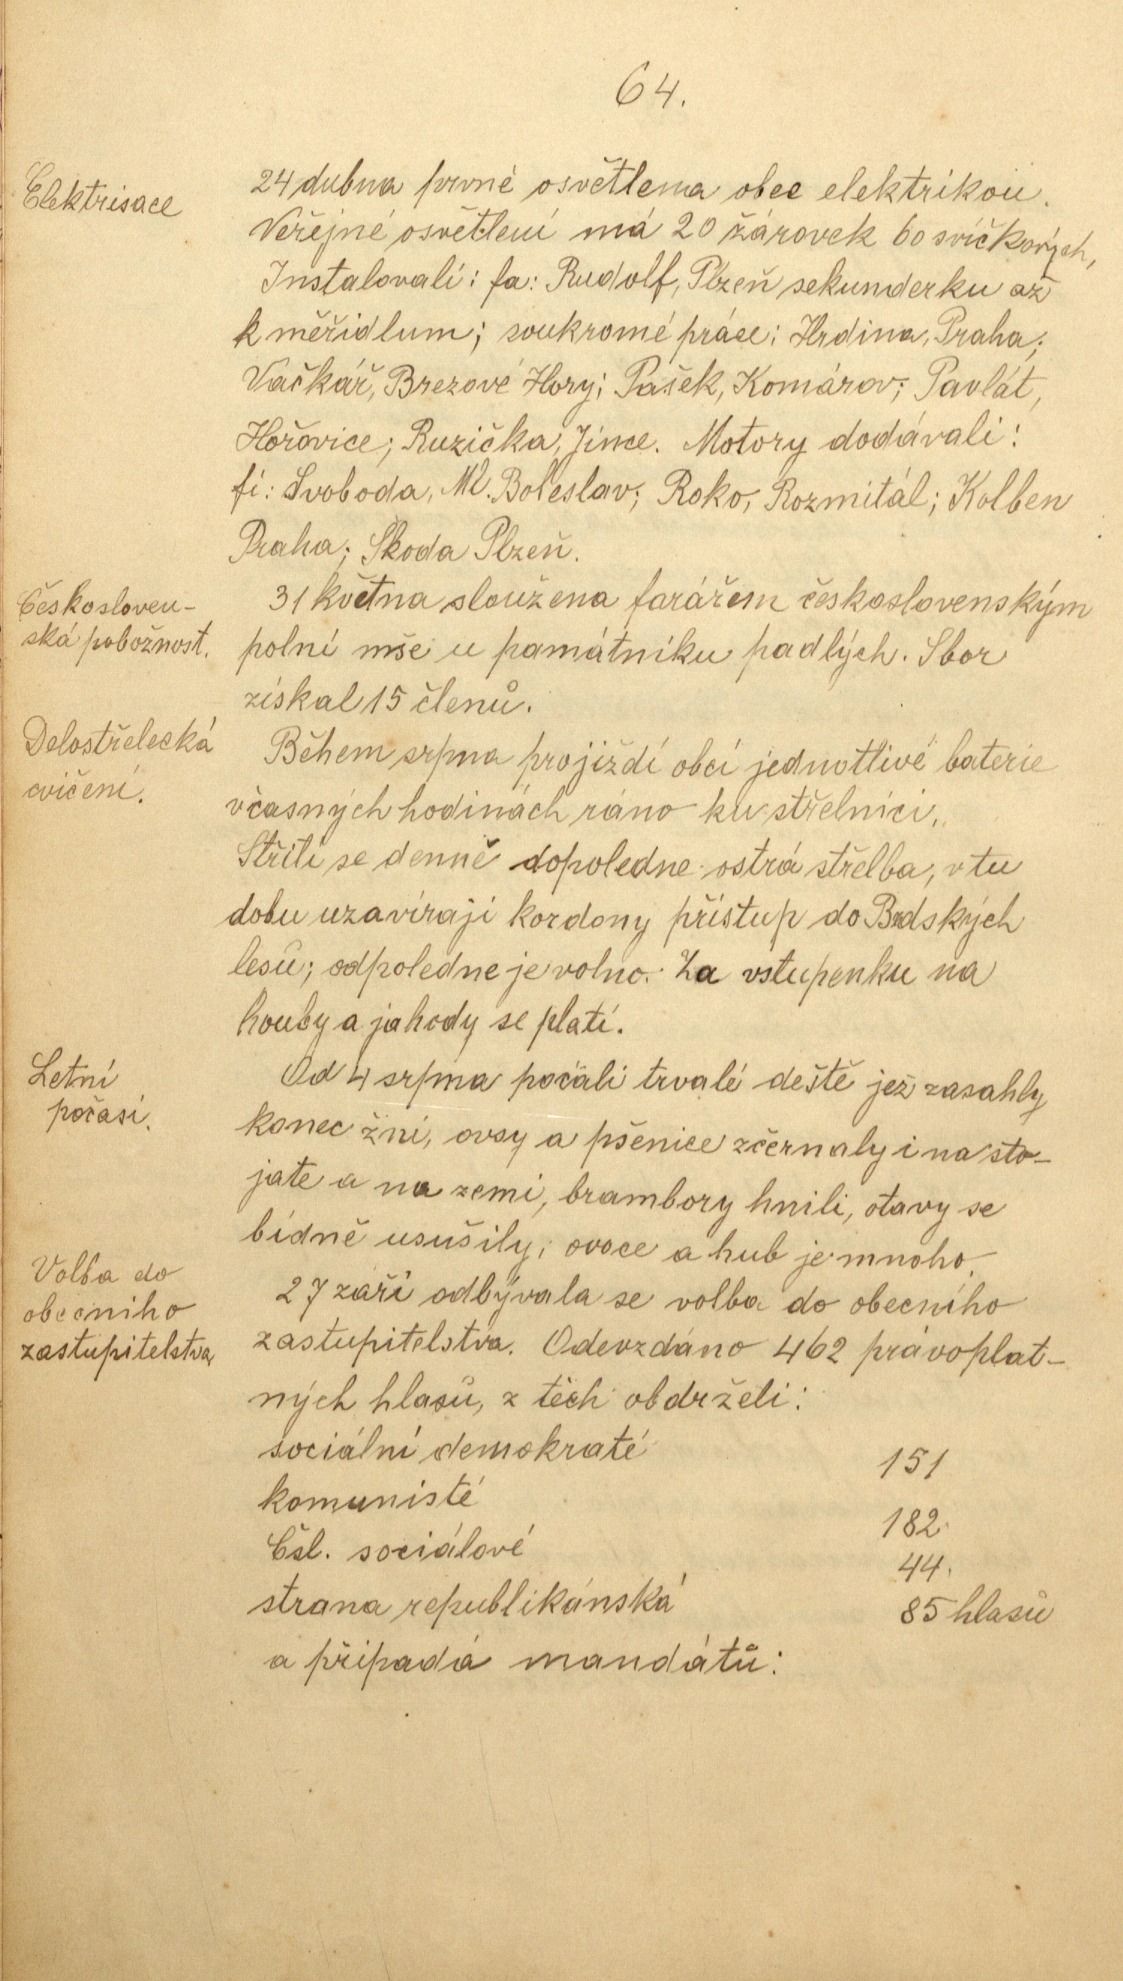 64.
Elektrisace
24 dubna prvné osvětlena obec elektrikou.
Veřejné osvětlení má 20 žárovek 60 svíčkových,
Instalovali: fa: Rudolf, Plzeň sekunderku až
k měřidlum; soukromé práce: Hrdina, Praha;
Vačkář, Brezové Hory; Pašek, Komárov; Pavlát,
Hořovice; Ruzička, Jince. Motory dodávali:
fi: Svoboda, Ml. Boleslav; Roko, Rozmitál; Kolben
Praha; Škoda Plzeň.
Českosloven-
ská pobožnost.
31 května sloužena farářem československým
polní mše u památníku padlých. Sbor
získal 15 členů.
Delostřelecká
cvičení.
Během srpna projíždí obcí jednotlivé baterie
včasných hodinách ráno ku střelnici.
Střílí se denně dopoledne ostrá střelba, v tu
dobu uzavírají kordony přístup do Brdských
lesů; odpoledne je volno. Za vstupenku na
houby a jahody se platí.
Letní
počasí.
Od 4 srpna počali trvalé deště jež zasahly
konec žní, ovsy a pšenice zčernaly i na sto-
jate a na zemi, brambory hnili, otavy se
bídně usušily; ovoce a hub je mnoho.
Volba do
obecniho
zastupitelstva
27 září odbývala se volba do obecního
zastupitelstva. Odevzdáno 462 právoplat-
ných hlasů, z těch obdrželi:
sociální demokraté 151
komunisté 182
Čsl. sociálové 44.
strana republikánská 85 hlasů
a připadá mandátů: